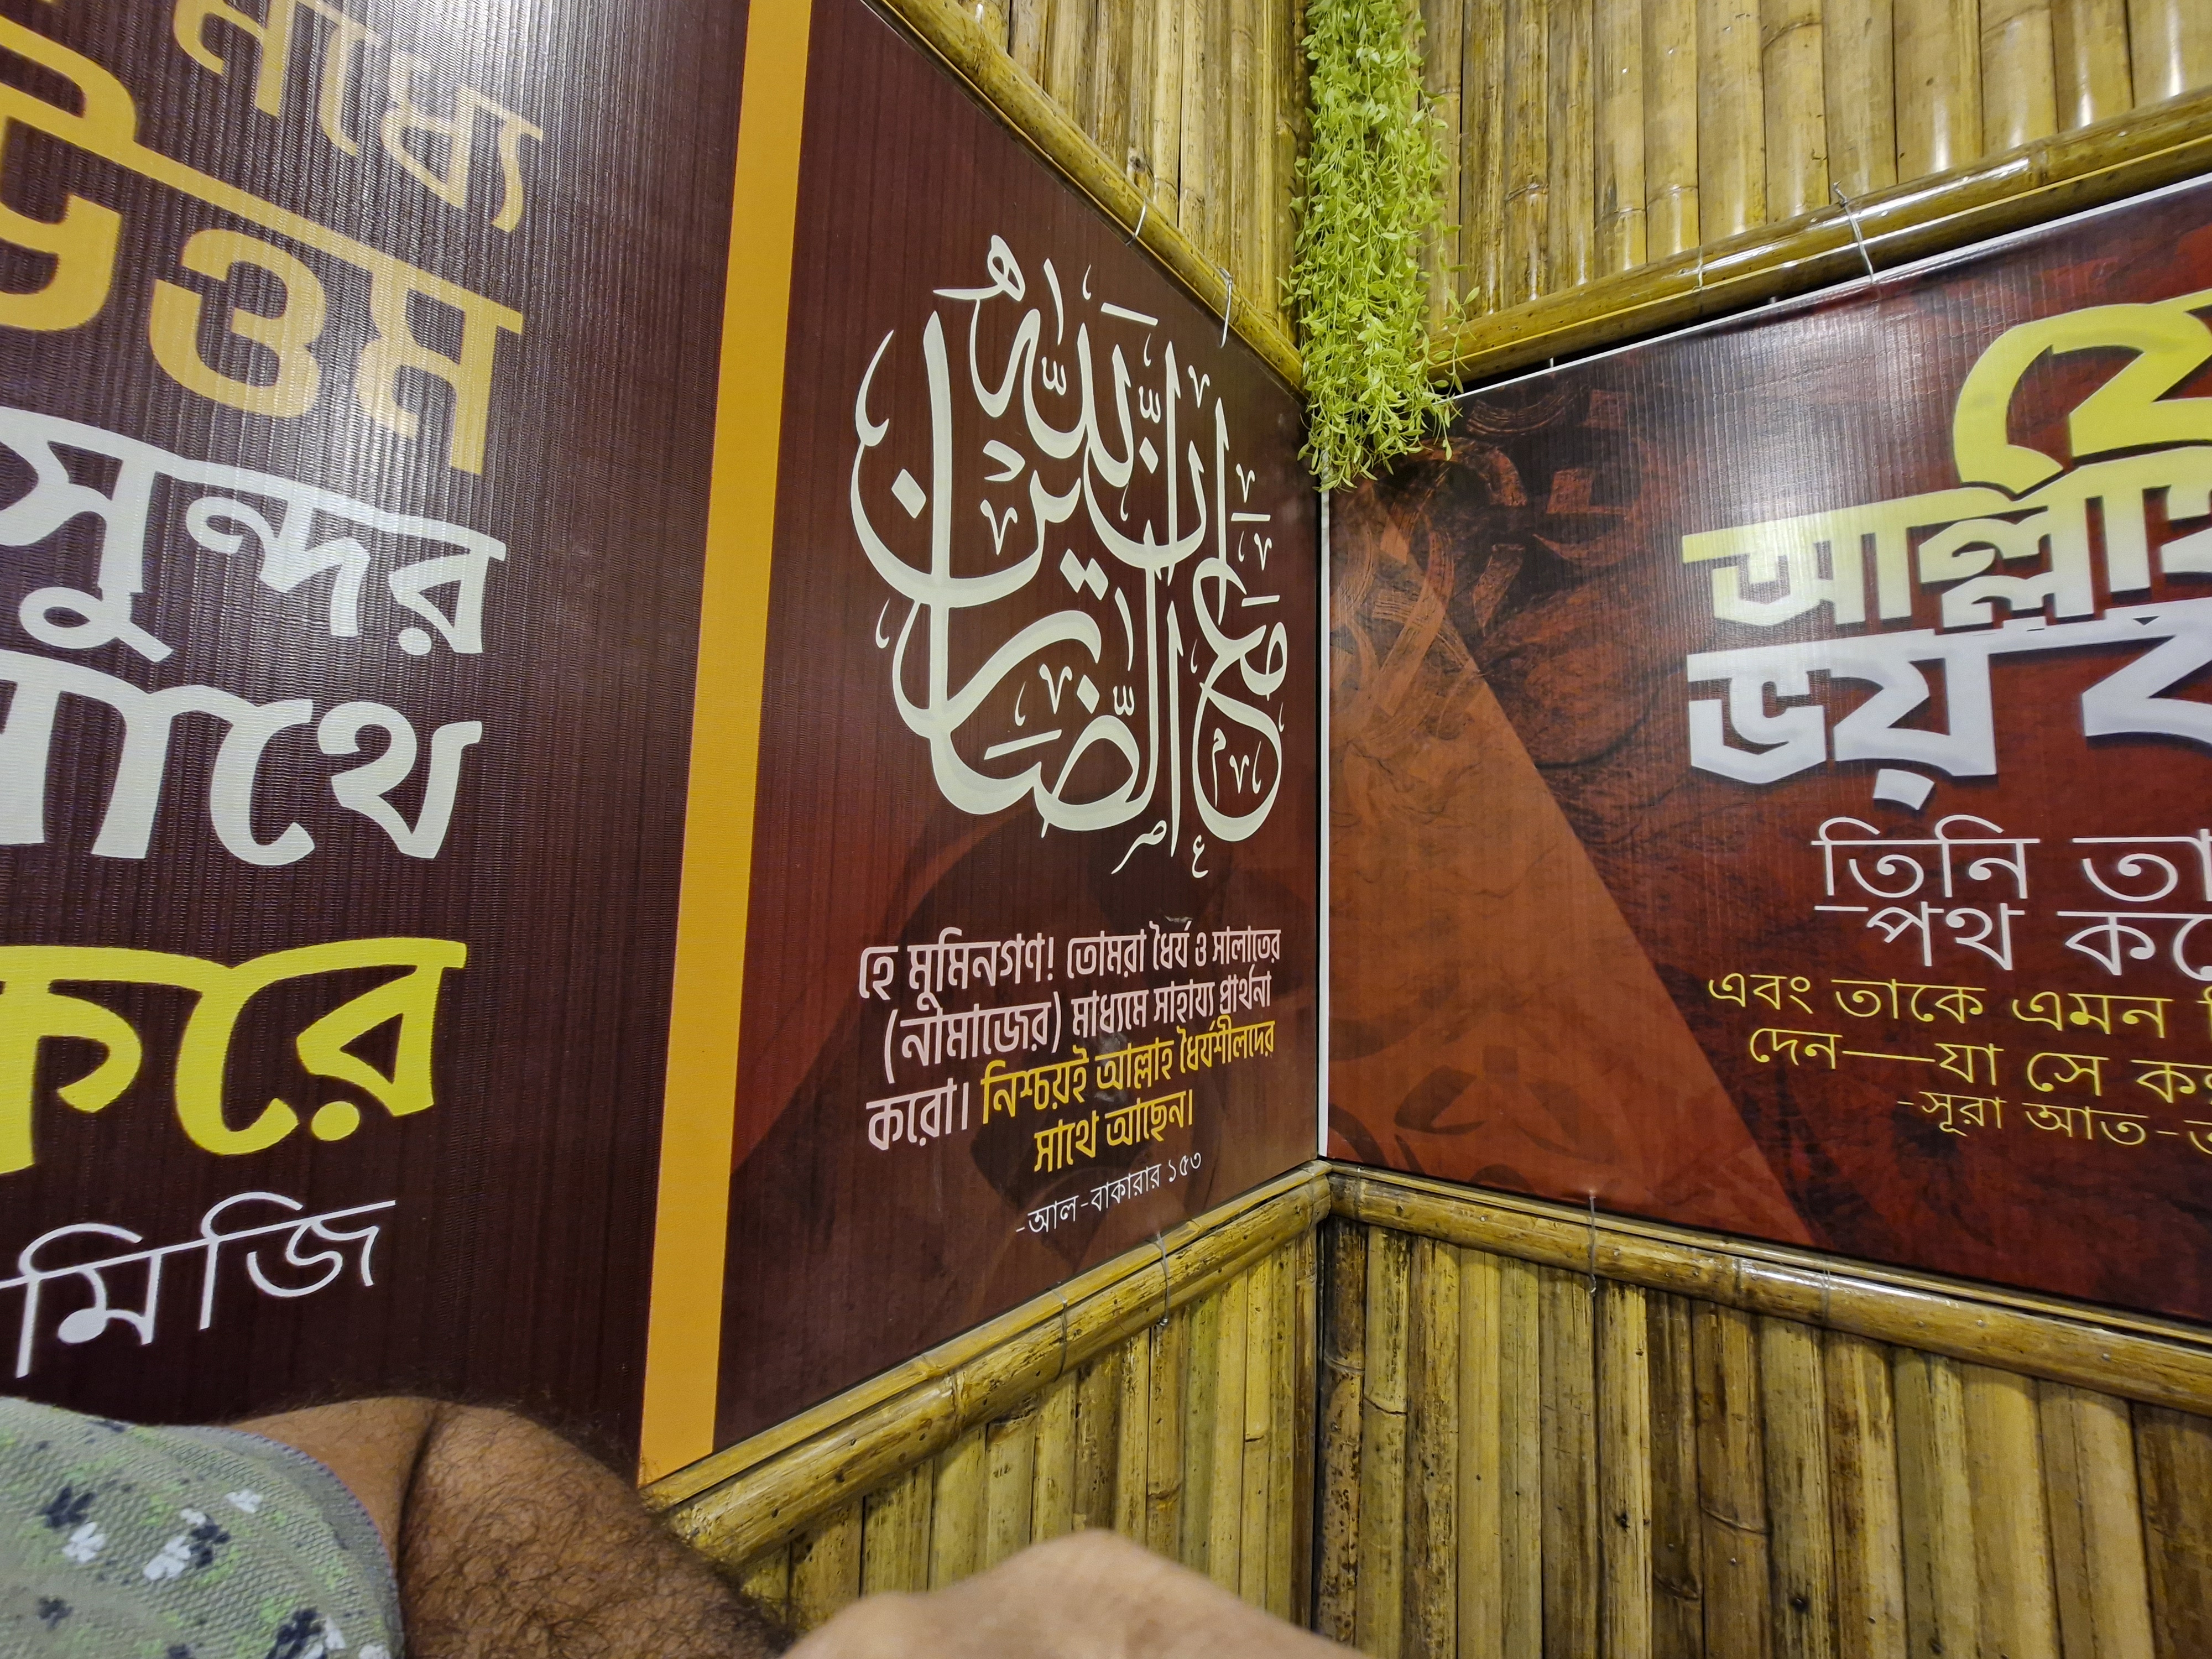 মধ্যে
উত্তম
সুন্দর
সাথে
করে
মিজি
إن الله مع الصابرين
হে মুমিনগণ! তোমরা ধৈর্য ও সালাতের
(নামাজের) মাধ্যমে সাহায্য প্রার্থনা
করো। নিশ্চয়ই আল্লাহ ধৈর্যশীলদের
সাথে আছেন।
-আল-বাকারার ১৫৩
যে
ভয়
তিনি
পথ
এবং তাকে এমন
দেন—যা সে
-সূরা আত-